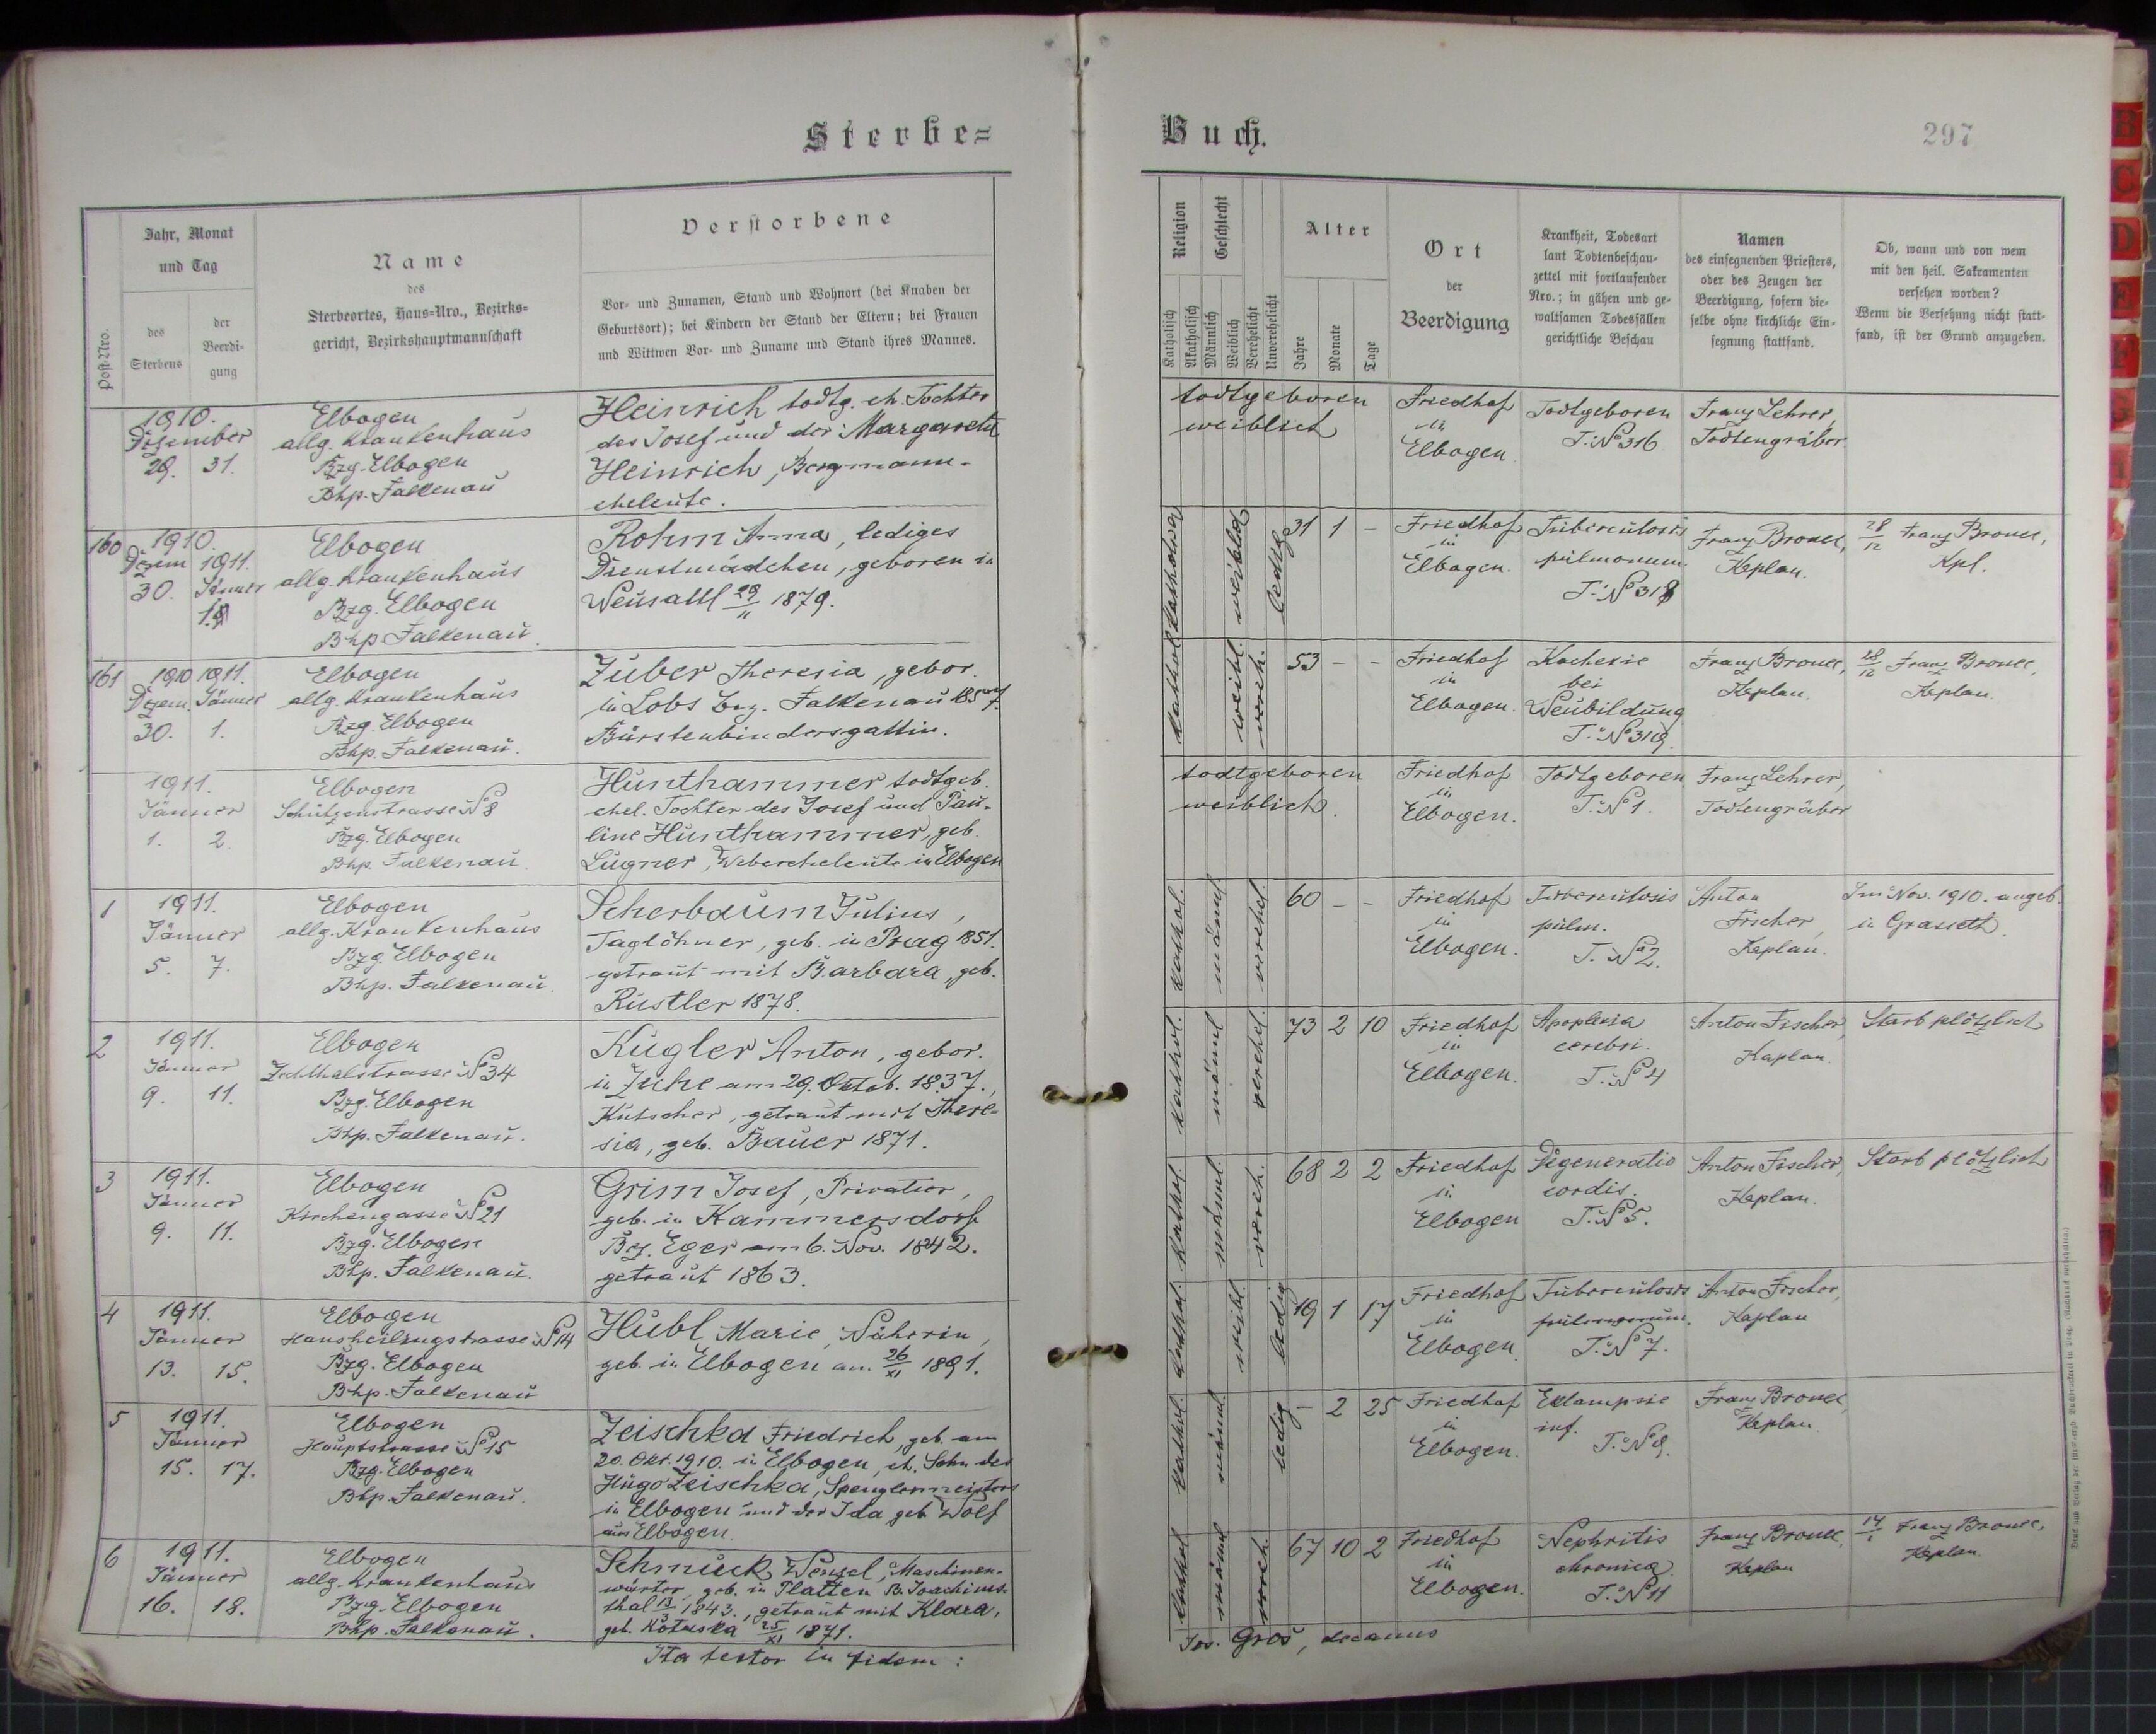 Sterbe=
Buch.
297
Post-Nro.
Jahr, Monat
und Tag
des
Sterbens
der
Beerdi-
gung
Name
des
Sterbeortes, Haus=Nro., Bezirks=
gericht, Bezirkshauptmannschaft
Verstorbene
Vor- und Zunamen, Stand und Wohnort (bei Knaben der
Geburtsort); bei Kindern der Stand der Eltern; bei Frauen
und Wittwen Vor- und Zuname und Stand ihres Mannes.
Religion
Katholisch
Akatholisch
Geschlecht
Männlich
Weiblich
Verehelicht
Unverehelicht
Alter
Jahre
Monate
Tage
Ort
der
Beerdigung
Krankheit, Todesart
laut Todtenbeschau-
zettel mit fortlaufender
Nro.; in gähen und ge-
waltsamen Todesfällen
gerichtliche Beschau
Namen
des einsegnenden Priesters,
oder des Zeugen der
Beerdigung, sofern die-
selbe ohne kirchliche Ein-
segnung stattfand.
Ob, wann und von wem
mit den heil. Sakramenten
versehen worden?
Wenn die Versehung nicht statt-
fand, ist der Grund anzugeben.
1910.
Dezember
29. 31.
Elbogen
allg. Krankenhaus
Bzg. Elbogen
Bhp. Falkenau
Heinrich todtg. eh. Tochter
des Josef und der Margaretha
Heinrich, Bergmann-
eheleute.
todtgeboren
weiblich
Friedhof
in
Elbogen.
Todtgeboren
T. No 316
Franz Lehrer,
Todtengräber
160
1910.
Dezem 1911.
30. Jänner
1.
Elbogen
allg. Krankenhaus
Bzg. Elbogen
Bhp. Falkenau.
Rohm Anna, lediges
Dienstmädchen, geboren in
Neusattl 29/11 1879.
katholisch
weiblich
ledig
31 1 -
Friedhof
in
Elbogen.
Tuberculosis
pulmonum.
T. No 318
Franz Bronec,
Kaplan.
28/12 Franz Bronec,
Kpl.
161
1910 1911.
Dezem. Jänner
30. 1.
Elbogen
allg. Krankenhaus
Bzg. Elbogen
Bhp. Falkenau.
Zuber Theresia, gebor.
in Lobs Bez. Falkenau 1857.
Bürstenbindersgattin.
kathol.
weibl.
vereh.
53 - -
Friedhof
in
Elbogen.
Kachexie
bei
Neubildung
T. No 319.
Franz Bronec,
Kaplan.
28/12 Franz Bronec,
Kaplan.
1911.
Jänner
1. 2.
Elbogen
Schützenstrasse No 8
Bzg. Elbogen
Bhp. Falkenau
Hunthammer todtgeb.
ehel. Tochter des Josef und Pau-
line Hunthammer, geb.
Lugner, Webereheleute in Elbogen
todtgeboren
weiblich.
Friedhof
in
Elbogen.
Todtgeboren
T. No 1.
Franz Lehrer,
Todtengräber
1
1911.
Jänner
5. 7.
Elbogen
allg. Krankenhaus
Bzg. Elbogen
Bhp. Falkenau.
Scherbaum Julius,
Taglöhner, geb. in Prag 1851.
getraut mit Barbara, geb.
Rustler 1878.
kathol.
männl.
verehel.
60 - -
Friedhof
in
Elbogen.
Tuberculosis
pulm.
T. No 2.
Anton
Fischer,
Kaplan.
Im Nov. 1910. angeb.
in Grasseth.
2
1911.
Jänner
9. 11.
Elbogen
Zechthalstrasse No 34
Bzg. Elbogen
Bhp. Falkenau.
Kugler Anton, gebor.
in Zeche am 29. Oktob. 1837.,
Kutscher, getraut mit There-
sia, geb. Bauer 1871.
kathol.
männl
verehel.
73 2 10
Friedhof
in
Elbogen.
Apoplexia
cerebri.
T. No 4
Anton Fischer,
Kaplan.
Starb plötzlich
3
1911.
Jänner
9. 11.
Elbogen
Kirchengasse No 21
Bzg. Elbogen
Bhp. Falkenau.
Grim Josef, Privatier,
geb. in Kammersdorf
Bez. Eger am 6. Nov. 1842.
getraut 1863.
kathol.
männl.
vereh.
68 2 2
Friedhof
in
Elbogen
Degeneratio
cordis.
T. No 5.
Anton Fischer,
Kaplan.
Starb plötzlich
4
1911.
Jänner
13. 15.
Elbogen
Hansheilingstrasse No 14
Bzg. Elbogen
Bhp. Falkenau
Hübl Marie, Näherin,
geb. in Elbogen am 26/XI 1891.
kathol.
weibl.
ledig
19 1 17
Friedhof
in
Elbogen.
Tuberculosis
pulmonum.
T. No 7.
Anton Fischer,
Kaplan
5
1911.
Jänner
15. 17.
Elbogen
Hauptstrasse No 15
Bzg. Elbogen
Bhp. Falkenau.
Zeischka Friedrich geb. am
20. Okt. 1910. in Elbogen, eh. Sohn des
Hugo Zeischka, Spenglermeisters
in Elbogen und der Ida geb. Wolf
aus Elbogen.
kathol.
männl.
ledig
- 2 25
Friedhof
in
Elbogen.
Eklampsie
inf.
T. No 9.
Franz Bronec
Kaplan.
6
1911.
Jänner
16. 18.
Elbogen
allg. Krankenhaus
Bzg. Elbogen
Bhp. Falkenau.
Schmuck Wenzel, Maschinen-
wärter, geb. in Platten B. Joachims-
thal 13/3 1843., getraut mit Klara,
geb. Kotuska 25/XI 1871.
kathol
männl
vereh.
67 10 2
Friedhof
in
Elbogen.
Nephritis
chronica.
T. No 11
Franz Bronec,
Kaplan
14/1 Franz Bronec,
Kaplan.
Ita testor in fidem:
Jos. Groš, decanus
B
C
D
E
F